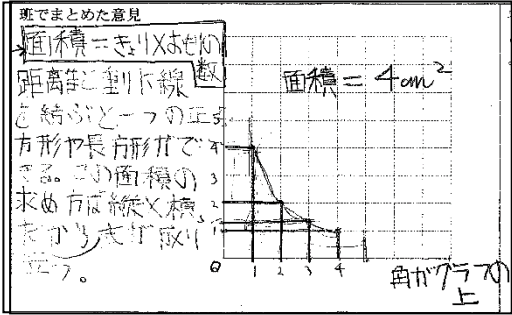 班でまとめた意見
面積=きょり×おもりの数
距離と重りに線
を結ぶと一つの正
方形や長方形がで
きる。この面積の
求め方は縦×横、
だから式が成り
立つ。
面積=4cm²
4
3
2
1
0 1 2 3 4
角がグラフの
上